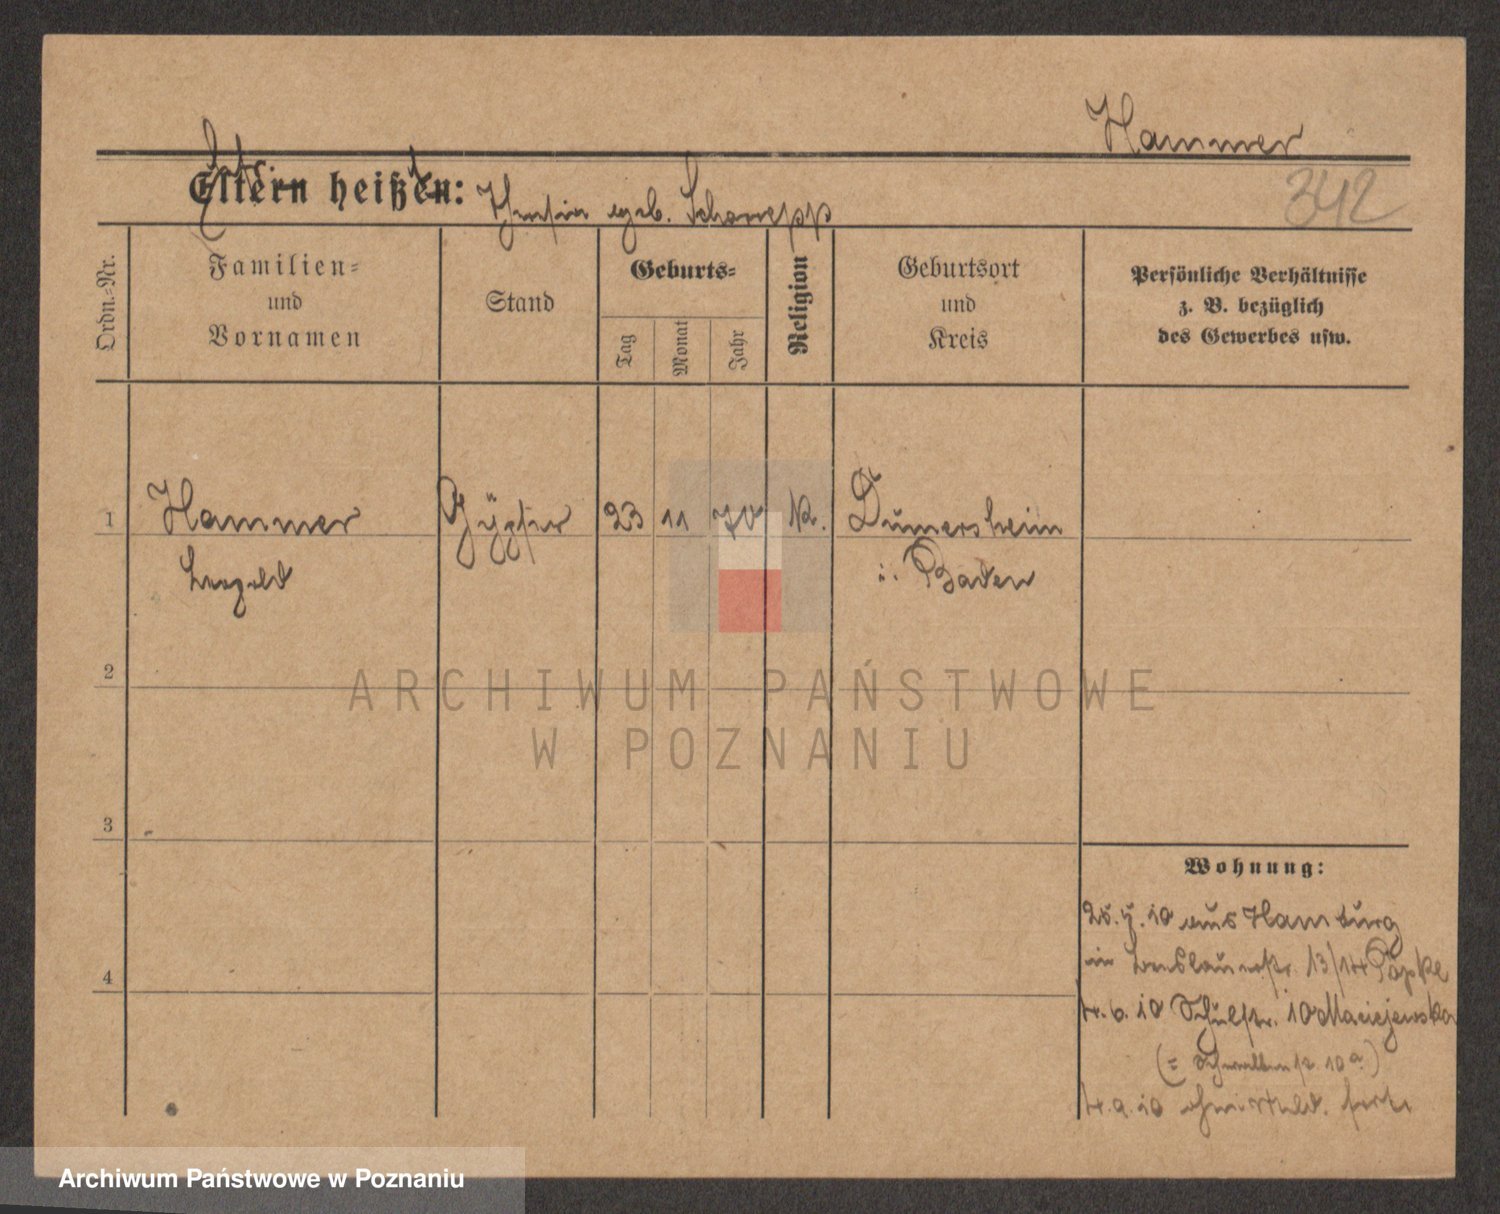 Hammer
342
Eltern heißen:
geb. Schnepp
Ordn.-Nr.
Familien-
und
Vornamen
Stand
Geburts-
Tag
Monat
Jahr
Religion
Geburtsort
und
Kreis
Persönliche Verhältnisse
z. B. bezüglich
des Gewerbes usw.
1 Hammer Gypser 23 11 70 K. Durmersheim
Leopold i. Baden
2
ARCHIWUM PAŃSTWOWE
W POZNANIU
3
Wohnung:
25. 5. 10 aus Hamburg
in Breslauerstr. 13/14 Päpke
4
4. 6. 10 Schulstr. 10 Maciejewska
(= 10a)
4. 9. 10 ohne Meld. fort
Archiwum Państwowe w Poznaniu